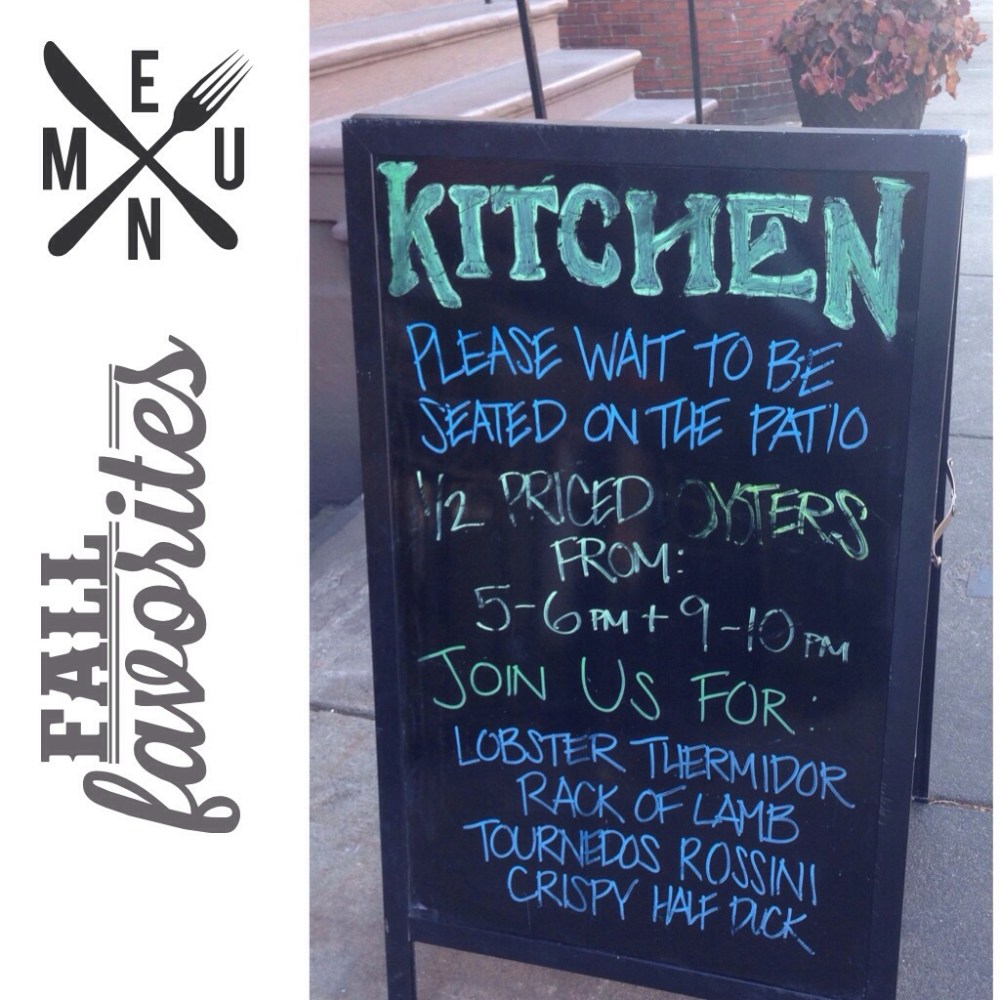 MENU
FALL
favorites
KITCHEN
PLEASE WAIT TO BE
SEATED ON THE PATIO
1/2 PRICED OYSTERS
FROM:
5-6 PM + 9-10 PM
JOIN US FOR:
LOBSTER THERMIDOR
RACK OF LAMB
TOURNEDOS ROSSINI
CRISPY HALF DUCK